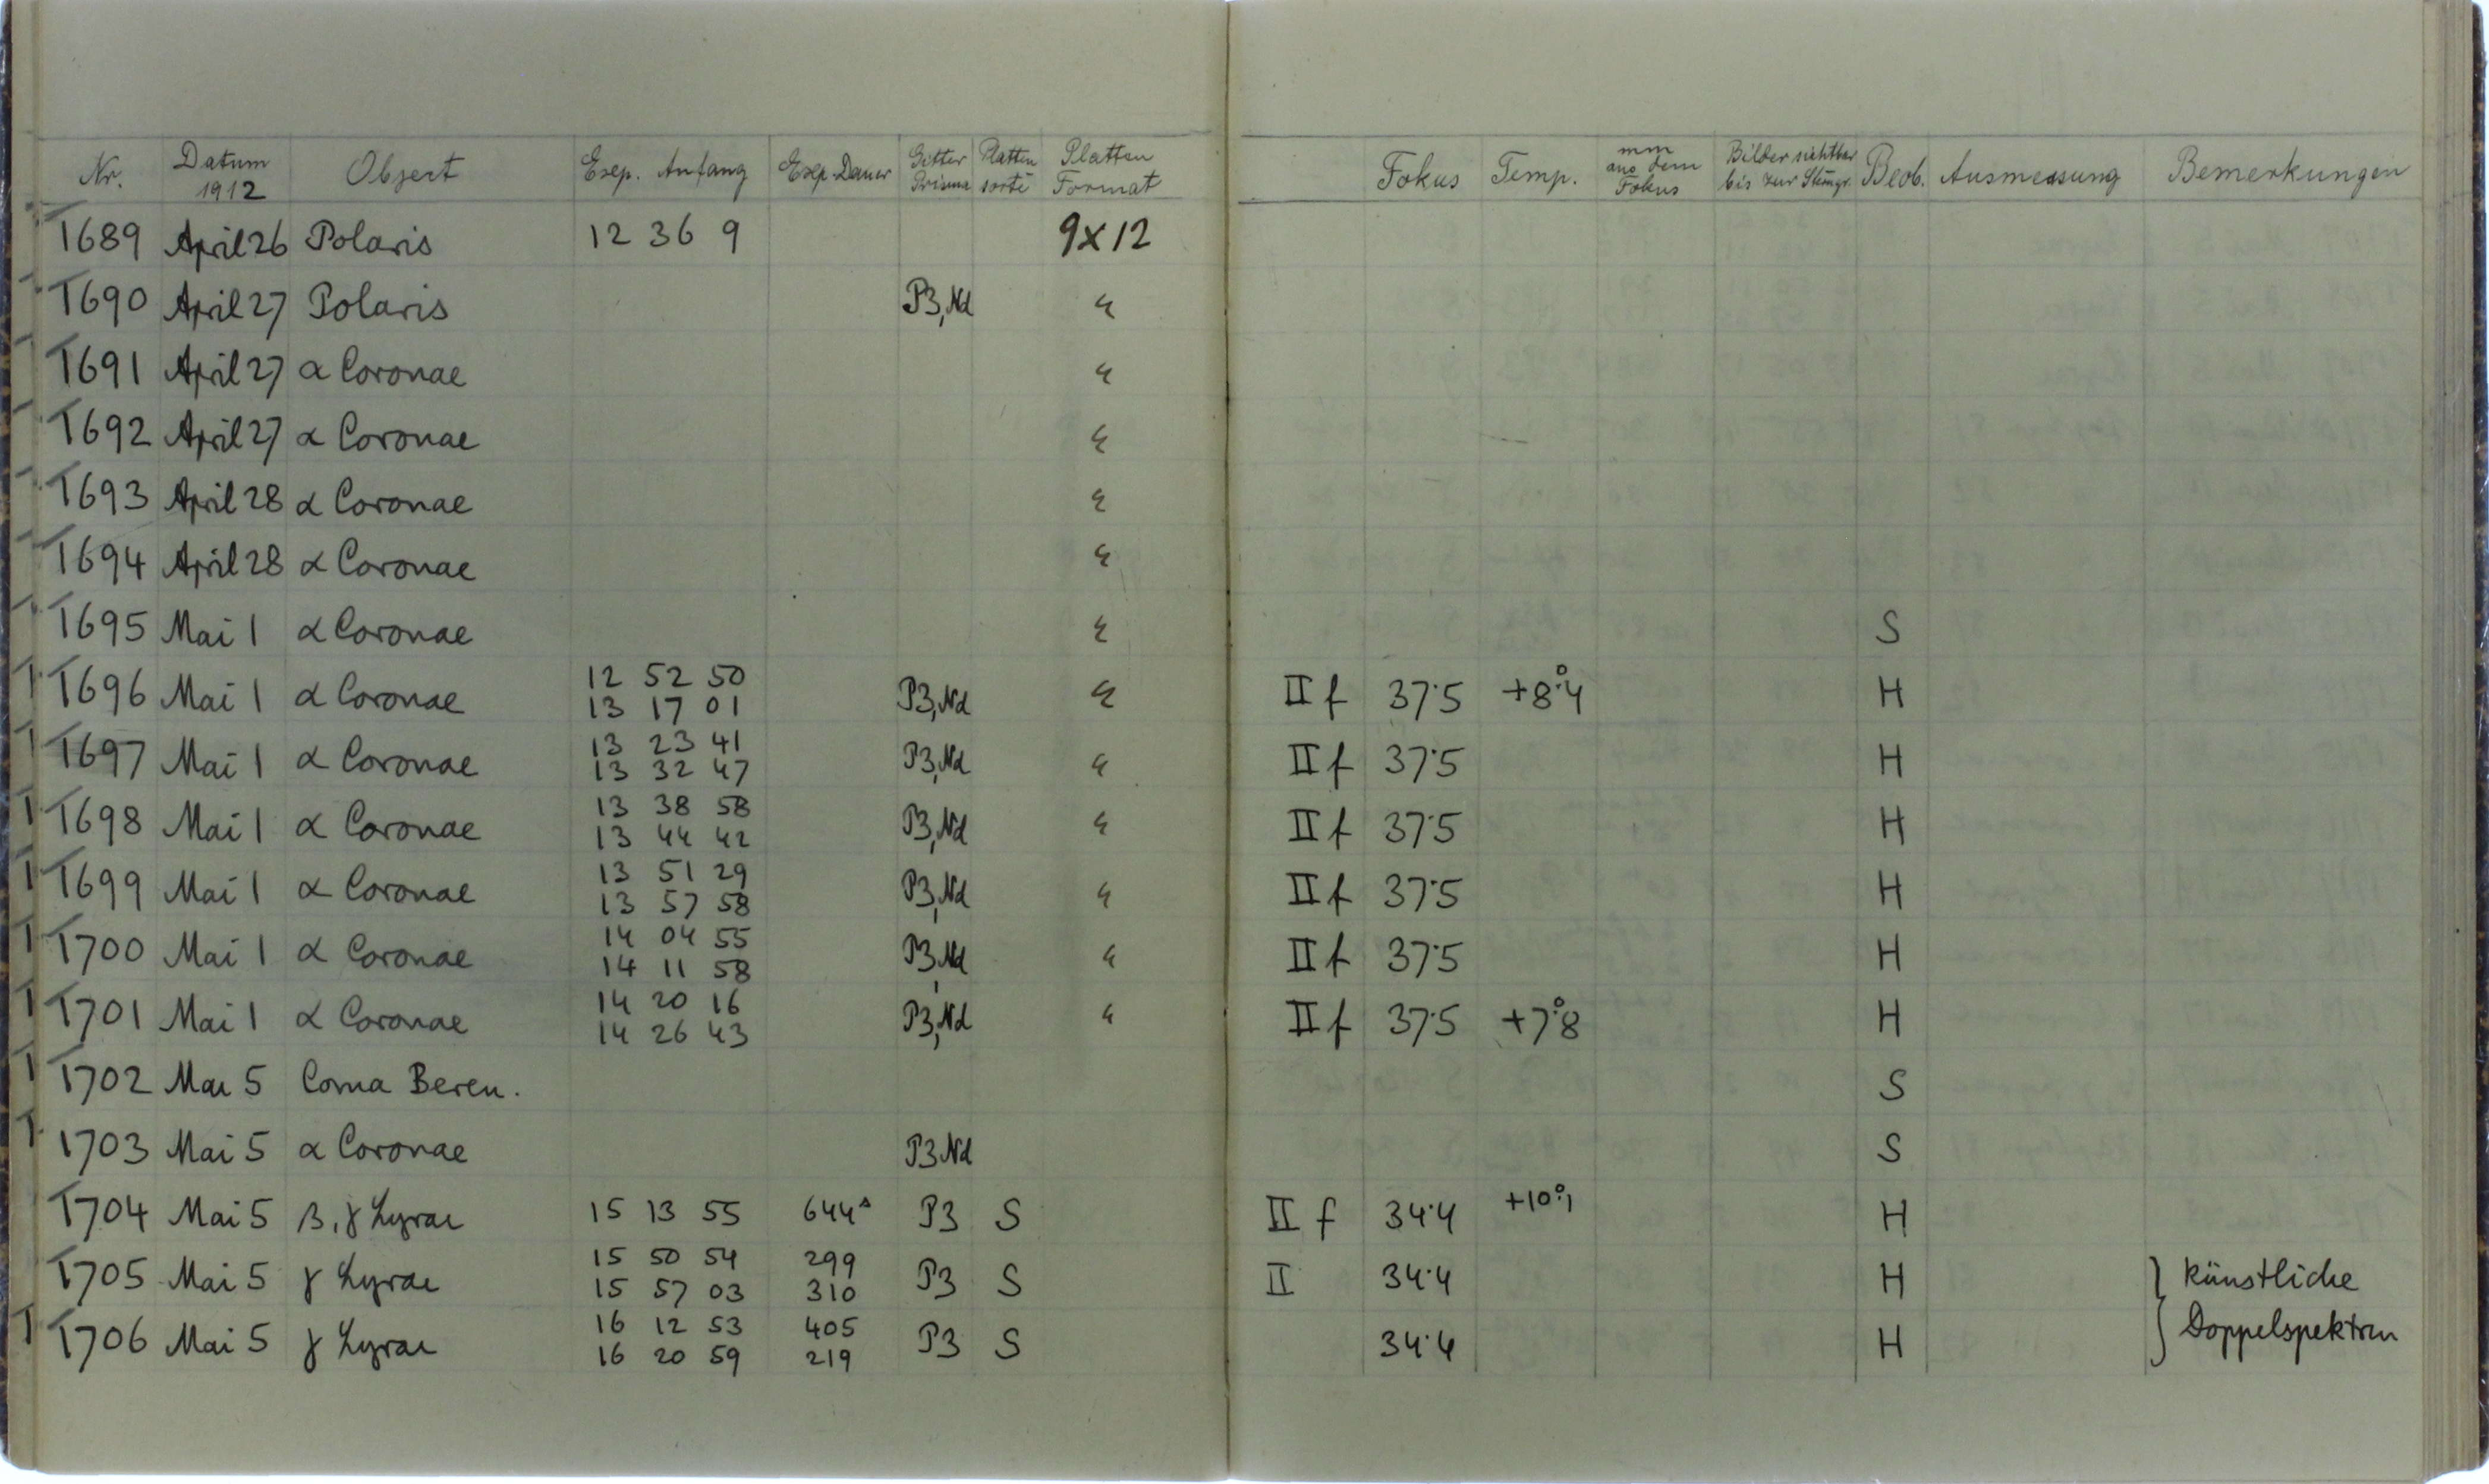 Nr. Datum 1912 Object Exp. Anfang Exp. Dauer Gitter Prisma Platten sorte Platten Format Fokus Temp. mm aus dem Fokus Bilder sichtbar bis zur Sterngr. Beob. Ausmessung Bemerkungen
1689 April 26 Polaris 12 36 9 9x12
1690 April 27 Polaris P3,Nd "
1691 April 27 α Coronae "
1692 April 27 α Coronae "
1693 April 28 α Coronae "
1694 April 28 α Coronae "
1695 Mai 1 α Coronae " S
1696 Mai 1 α Coronae 12 52 50 P3,Nd " II f 37.5 +8°.4 H
13 17 01
1697 Mai 1 α Coronae 13 23 41 P3,Nd " II f 37.5 H
13 32 47
1698 Mai 1 α Coronae 13 38 58 P3,Nd " II f 37.5 H
13 44 42
1699 Mai 1 α Coronae 13 51 29 P3,Nd " II f 37.5 H
13 57 58
1700 Mai 1 α Coronae 14 04 55 P3,Nd " II f 37.5 H
14 11 58
1701 Mai 1 α Coronae 14 20 16 P3,Nd " II f 37.5 +7°.8 H
14 26 43
1702 Mai 5 Coma Beren. S
1703 Mai 5 α Coronae P3 Nd S
1704 Mai 5 β, γ Lyrae 15 13 55 644s P3 S II f 34.4 +10°.1 H
1705 Mai 5 γ Lyrae 15 50 54 299 P3 S II 34.4 H künstliche
15 57 03 310
1706 Mai 5 γ Lyrae 16 12 53 405 P3 S 34.4 H Doppelspektren
16 20 59 219